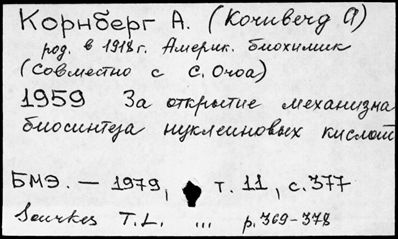 Корнберг А. (Кочивечд А)
род. в 1918 г. Америк. биохимик
(Совместно с С. Очоа)
1959 За открытие механизма
биосинтеза нуклеиновых кислот
БМЭ. — 1979, т. 11, с. 377
Sourkes T.L. ... p. 369-378